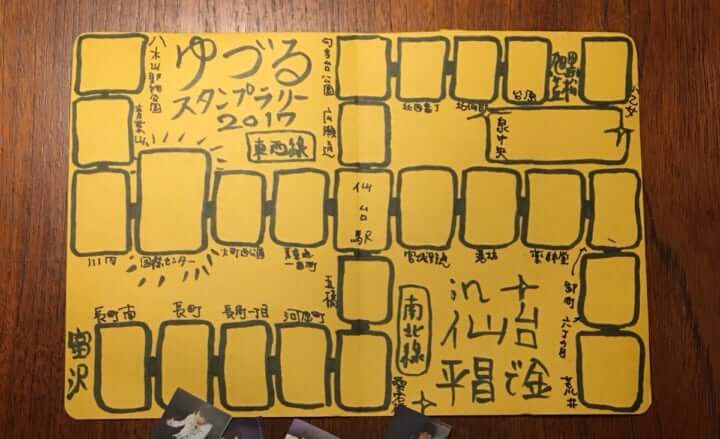 ゆづる
スタンプラリー
2017
東西線
八木山動物公園
青葉山
川内
国際センター
大町西公園
青葉通
一番町
仙台駅
宮城野通
薬師堂
卸町
六丁の目
荒井
勾当台公園
広瀬通
五橋
北四番丁
北仙台
台原
旭ヶ丘
黒松
八乙女
泉中央
南北線
愛宕橋
河原町
長町一丁目
長町
長町南
富沢
in
仙台
平昌で金